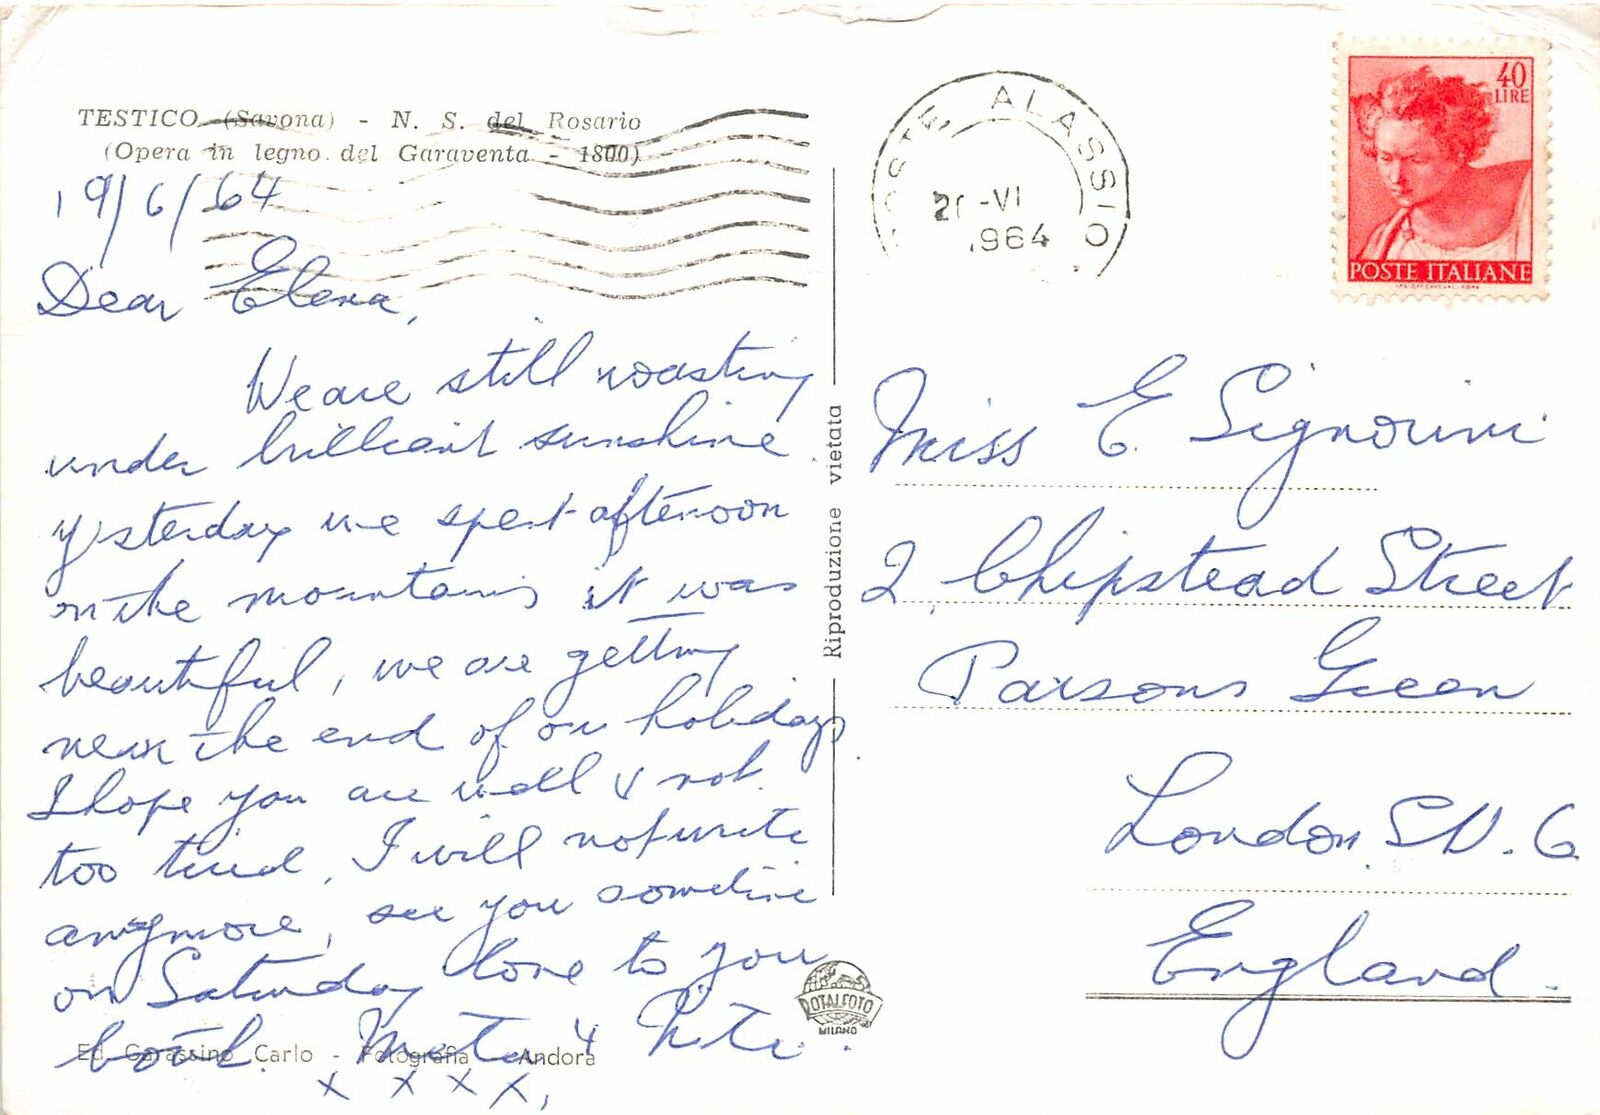 TESTICO (Savona) - N. S. del Rosario
(Opera in legno del Garaventa - 1800)
19/6/64
Dear Elena,
We are still roasting
under brilliant sunshine.
yesterday we spent afternoon
on the mountains it was
beautiful, we are getting
near the end of our holidays.
I hope you are well & not
too tired, I will not write
anymore, see you sometime
on Saturday love to you
both.
x x x x,
Ed. Garassino Carlo - Fotografia - Andora
Riproduzione vietata
ROTALFOTO
MILANO
POSTE ALASSIO
-VI
1964
40
LIRE
POSTE ITALIANE
Miss E. Signorini
2, Chipstead Street
Parsons Green
London. S.W. 6
England.